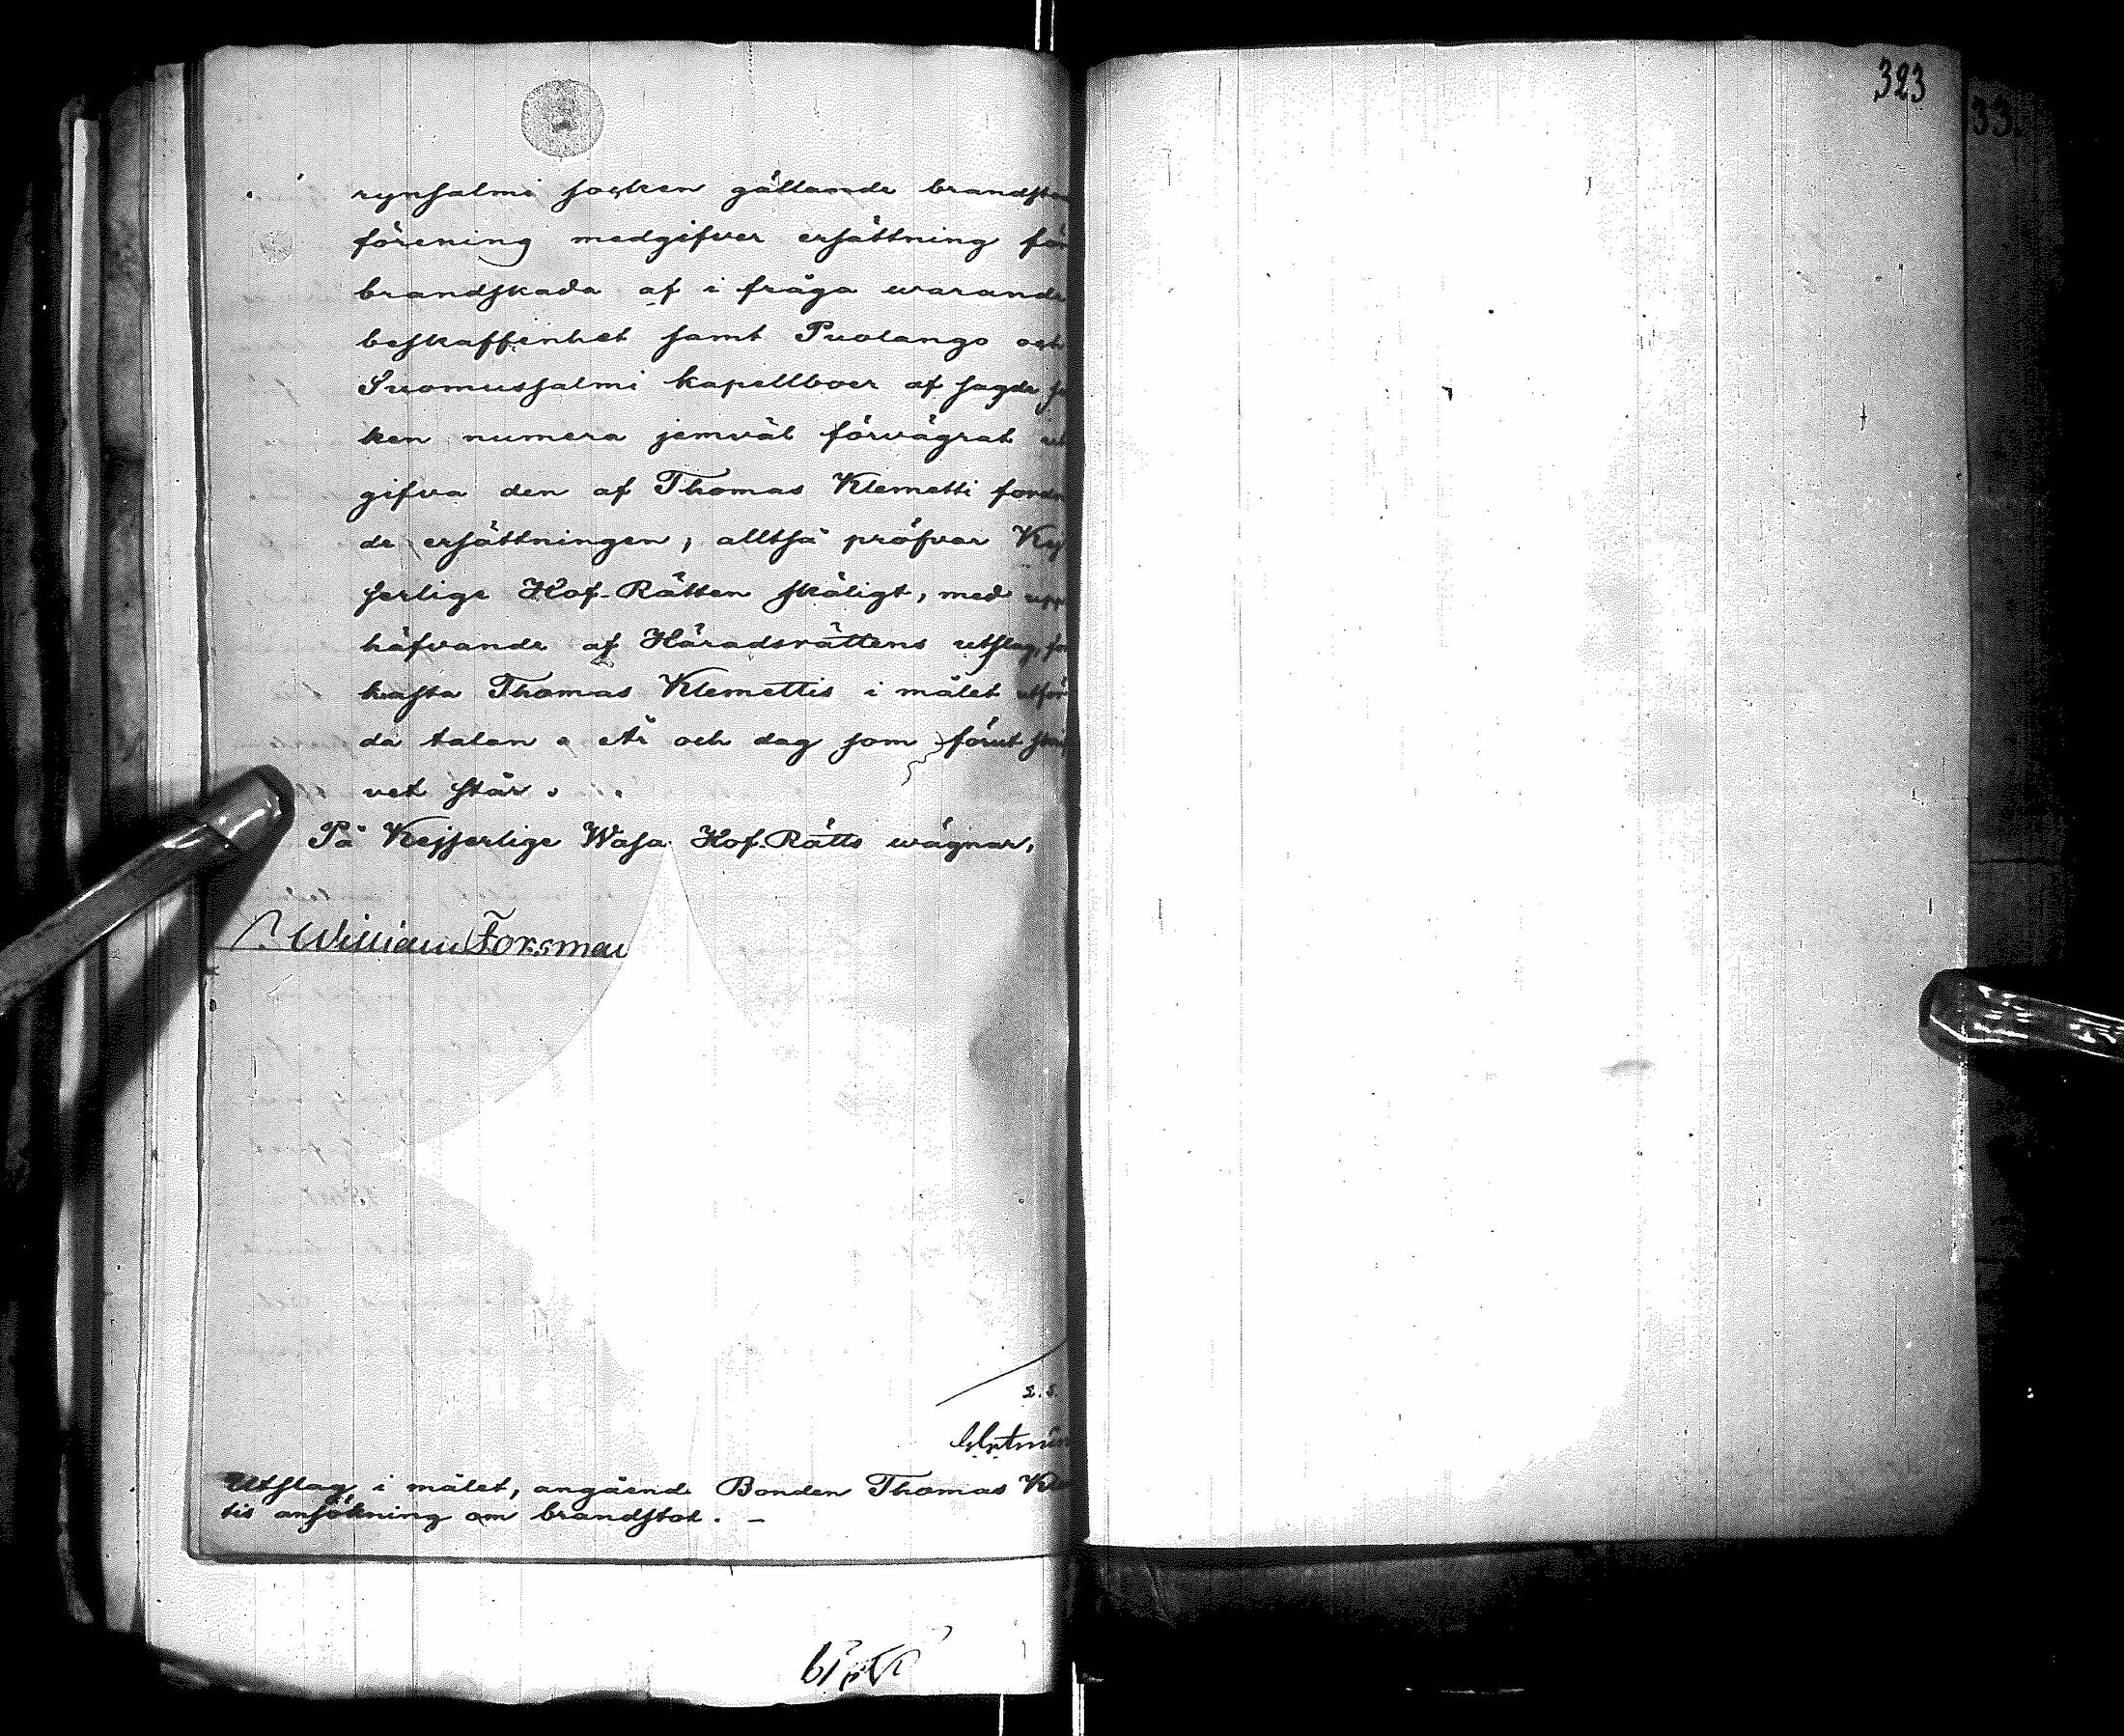 323
33.
rynsalmi socken gällande brandsto
förening medgifver ersättning för
brandskada af i fråga warande
beskaffenhet samt Puolango och
Suomussalmi kapellboer af sagde so
ken numera jemväl förvägrat ut
gifva den af Thomas Klemetti fordra
de ersättningen, alltså pröfvar Kej
serlige Hof-Rätten skäligt, med upp
häfvande af Häradsrättens utslag, för
kasta Thomas Klemettis i målet utför
da talan. År och dag som förut skrif
vet står.
På Kejserlige Wasa Hof-Rätts wägnar,
William Forsman
Utslag i målet, angående Bonden Thomas Kle
tis ansökning om brandstod. -